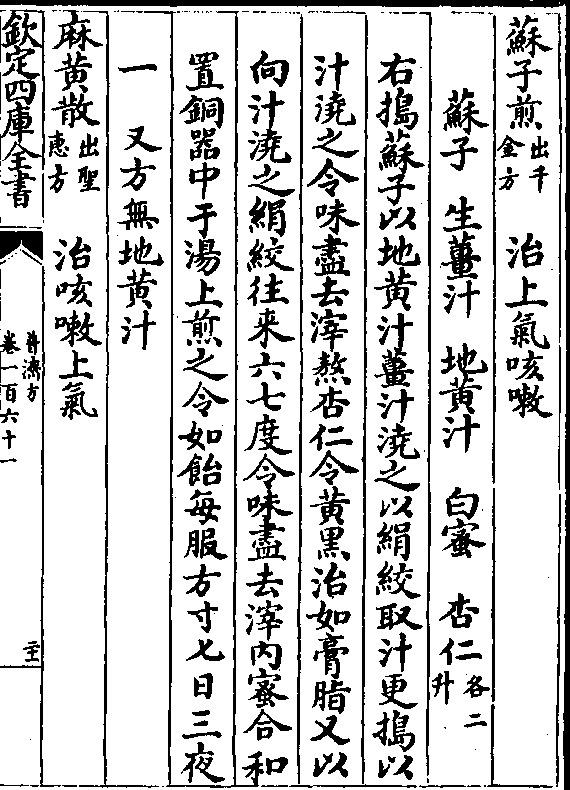 蘇子煎出千金方　治上氣咳嗽
蘇子　生薑汁　地黄汁　白蜜　杏仁各二升
右搗蘇子以地黄汁薑汁澆之以絹絞取汁更搗以
汁澆之令味盡去滓熬杏仁令黄黒治如膏脂又以
向汁澆之絹絞往来六七度令味盡去滓内蜜合和
置銅器中于湯上煎之令如飴每服方寸匕日三夜
一　又方無地黄汁
麻黄散出聖惠方　治咳嗽上氣
欽定四庫全書
普濟方
卷一百六十一